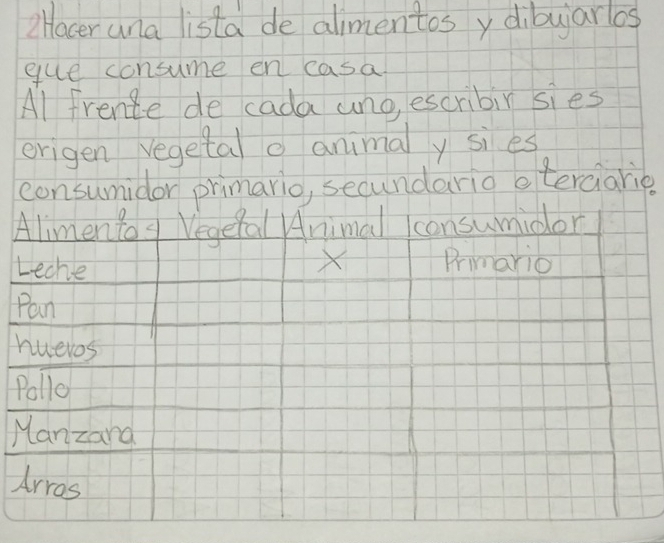 2 Hacer una lista de alimentos y dibujarlos
que consume en casa
Al frente de cada uno, escribir si es
origen vegetal o animal y si es
consumidor primario, secundario o terciario.
Alimentos Vegetal Animal consumidor
Leche X Primario
Pan
huevos
Pollo
Manzana
Arros